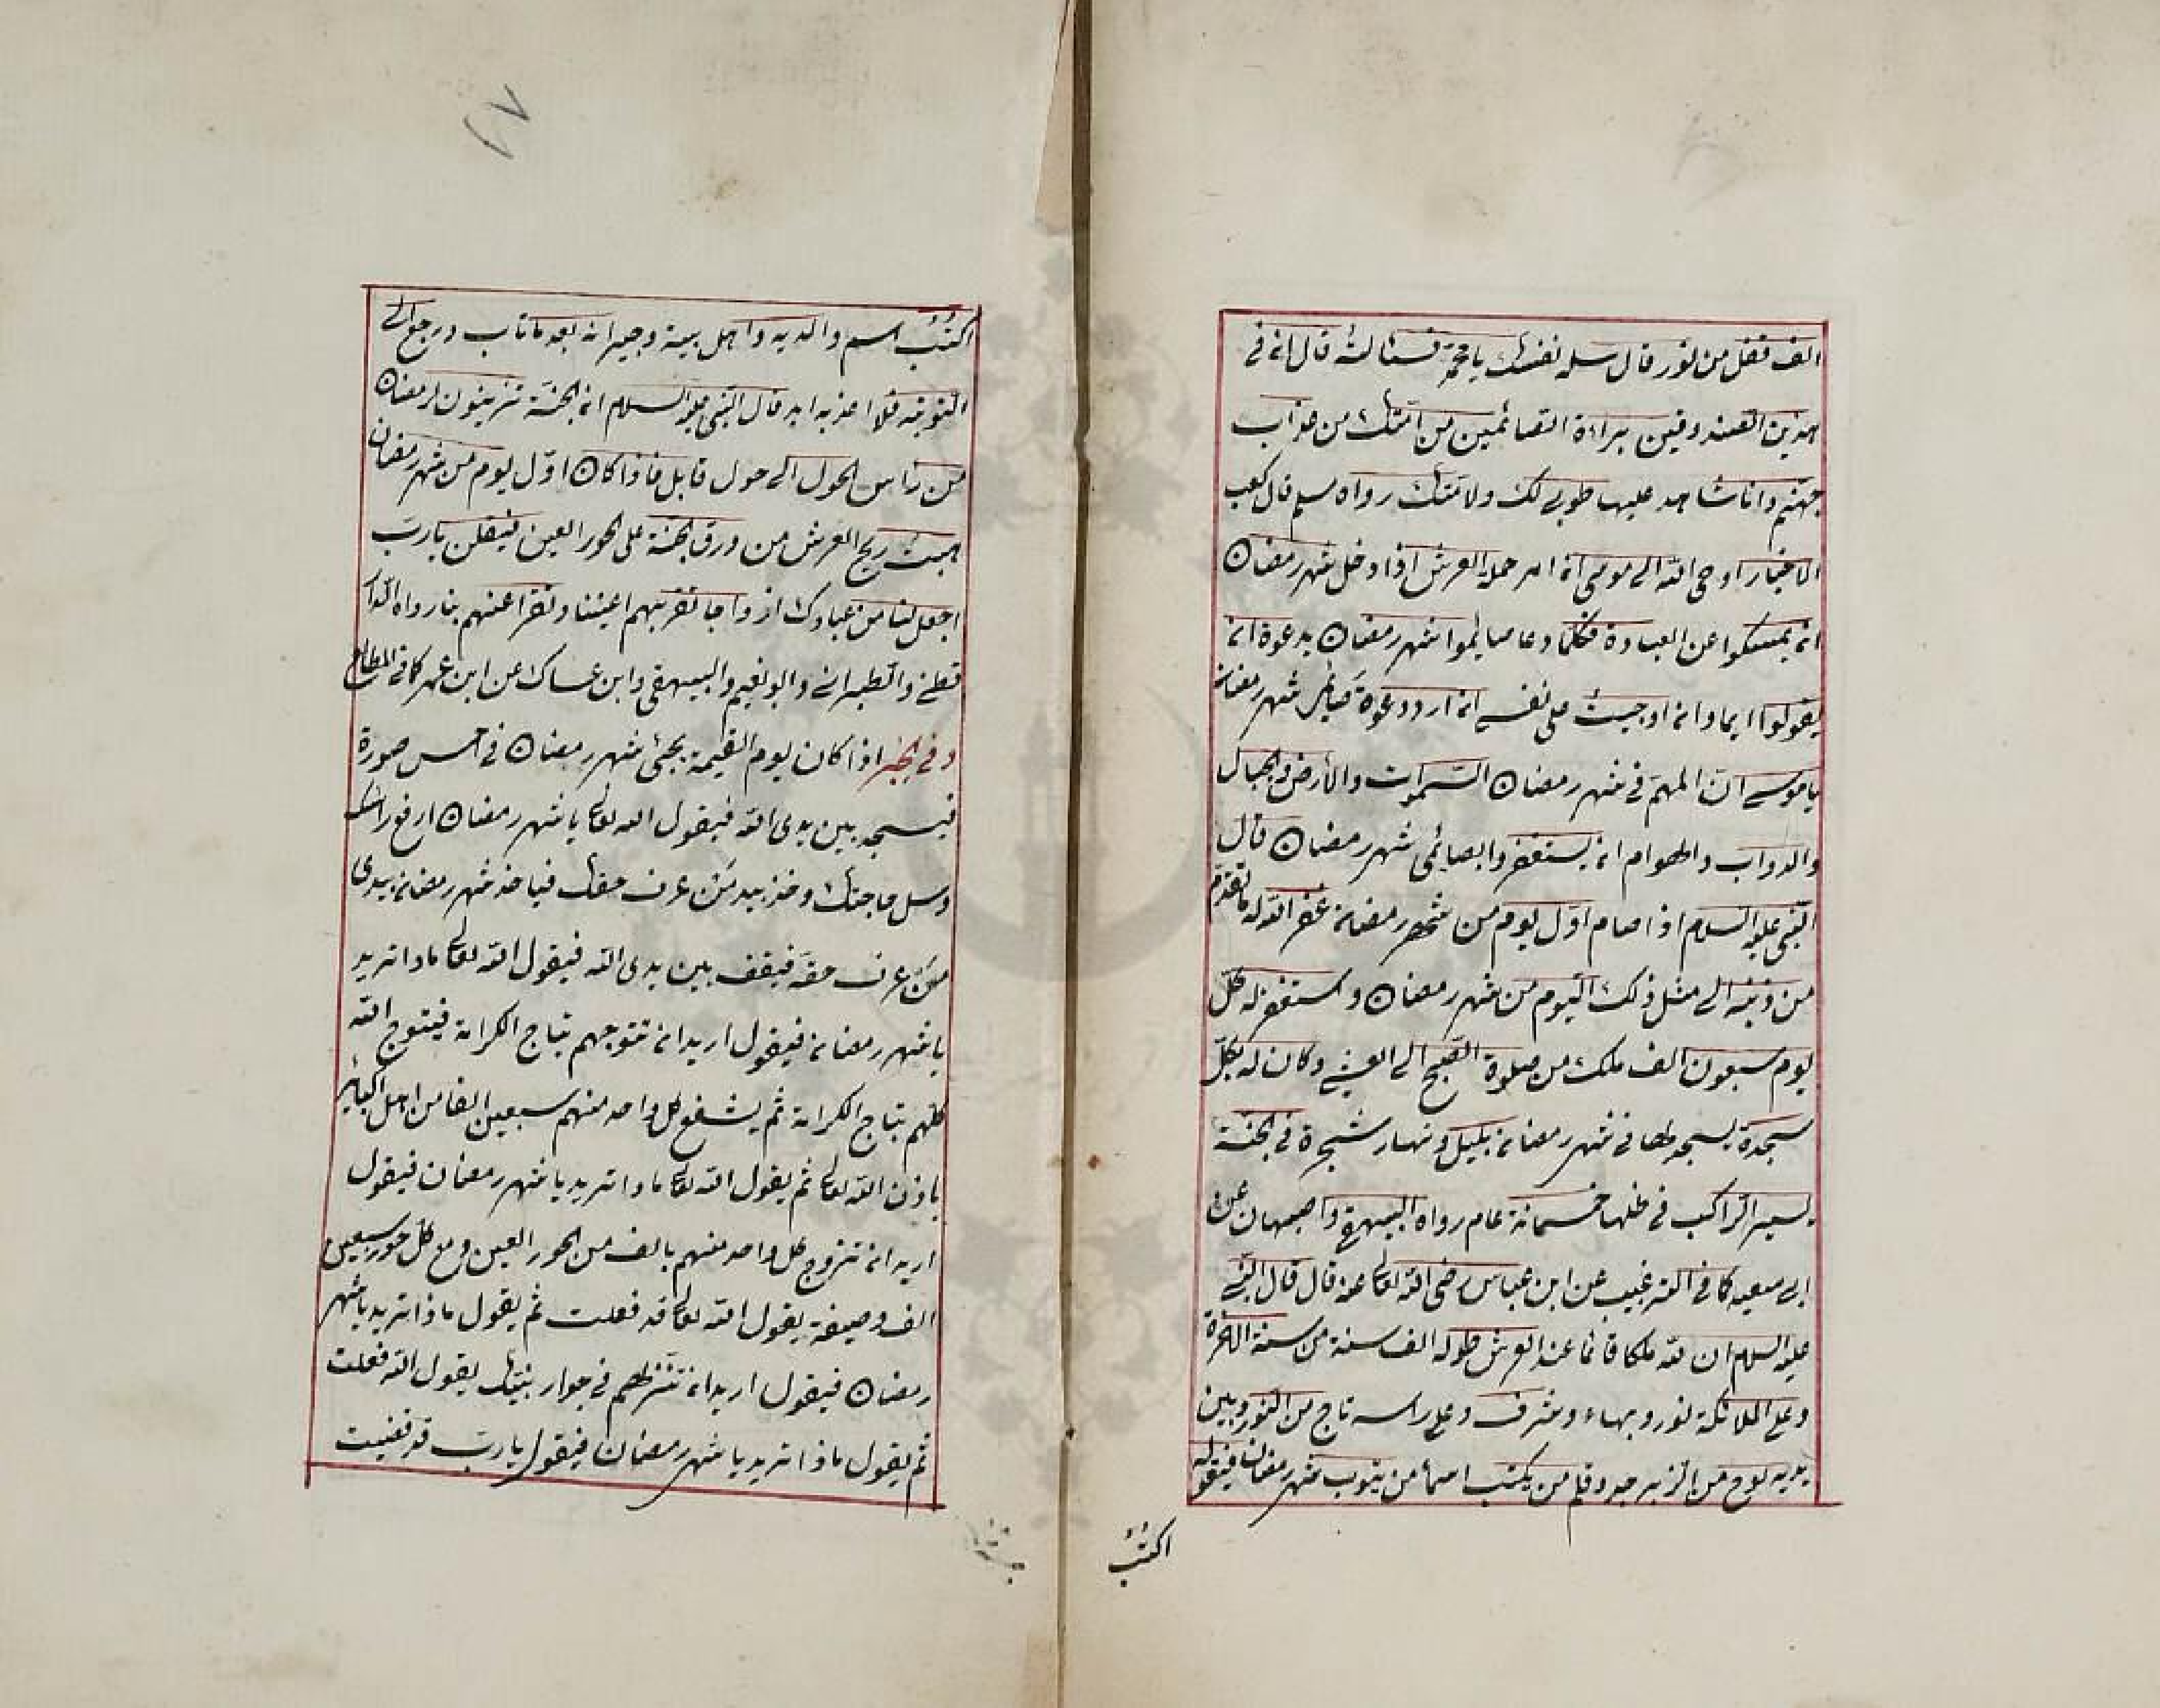 الف قفل من نور قال سله نفسك يا محمد فسئالته قال ان في
هذين الصندوقين براءة الصائمين من امتك من عذاب
جهنم وانا شاهد عليها طوبى لك ولامتك رواه مسلم قال كعب
الاخبار اوحى الله الى موسى ان امر حملة العرش اذا دخل شهر رمضان
ان يمسكوا عن العبادة فكلما دعا صايموا شهر رمضان بدعوة ان
يقولوا ايما وان اوجبت على نفسى ان ارد دعوة صيام شهر رمضان
يا موسى ان الهم في شهر رمضان السموات والارض والجبال
والدواب والهوام ان يستغفروا لصائمى شهر رمضان قال
النبى عليه السلام اذا صام اول يوم من شهر رمضان غفر الله له ما تقدم
من ذنبه الى مثل ذلك اليوم من شهر رمضان و استغفر له كل
يوم سبعون الف ملك من صلوة الصبح الى العشى وكان له بكل
سجدة يسجدها في شهر رمضان بليل ونهار شجرة في الجنة
يسير الراكب في ظلها خمسمائة عام رواه البيهقى واصبهان عن
ابى سعيد كما في الترغيب عن ابن عباس رضى الله تعالى عنه قال قال النبى
عليه السلام ان لله ملكا قائما عند العرش طوله الف سنة من سنة الاخرة
وعلى الملائكة نور وبهاء وشرف وعلى راسه تاج من النور وبين
يديه لوح من الزبرجد وقلم من يكتب اسماء من يتوب شهر رمضان فيقول
اكتب
٢٧
اكتب اسم والديه واهل بيته وجيرانه بعد ما تاب ورجع الى
التوبة فلا اعذبه ابد قال النبى عليه السلام ان الجنة تزينون لرمضان
من راس الحول الى حول قابل فاذا كان اول يوم من شهر رمضان
هبت ريح العرش من ورق الجنة على الحور العين فيقلن يا رب
اجعل لنا من عبادك ازواجا تقر بهم اعيننا وتقر اعينهم بنا رواه الدار
قطنى والطبرانى وابو نعيم والبيهقى وابن عساك عن ابن عمر كما في المطالع
وفي الخبر اذا كان يوم القيمة يجئ شهر رمضان في احسن صورة
فيسجد بين يدى الله فيقول الله تعالى يا شهر رمضان ارفع راسك
وسل حاجتك وخذ بيد من عرف حقك فياخذ شهر رمضان بيدى
من عرف حقه فيقف بين يدى الله فيقول الله تعالى ماذا تريد
يا شهر رمضان فيقول اريد ان تتوجهم بتاج الكرامة فيتوج الله
كلهم بتاج الكرامة ثم يشفع كل واحد منهم سبعين الفا من اهل الكبائر
باذن الله تعالى ثم يقول الله تعالى ماذا تريد يا شهر رمضان فيقول
اريد ان تتزوج كل واحد منهم بالف من الحور العين ومع كل حور سبعين
الف وصيفة يقول الله تعالى قد فعلت ثم يقول ماذا تريد يا شهر
رمضان فيقول اريد ان تنزلهم في جوار نبيك يقول الله فعلت
ثم يقول ماذا تريد يا شهر رمضان فيقول يا رب قد قضيت